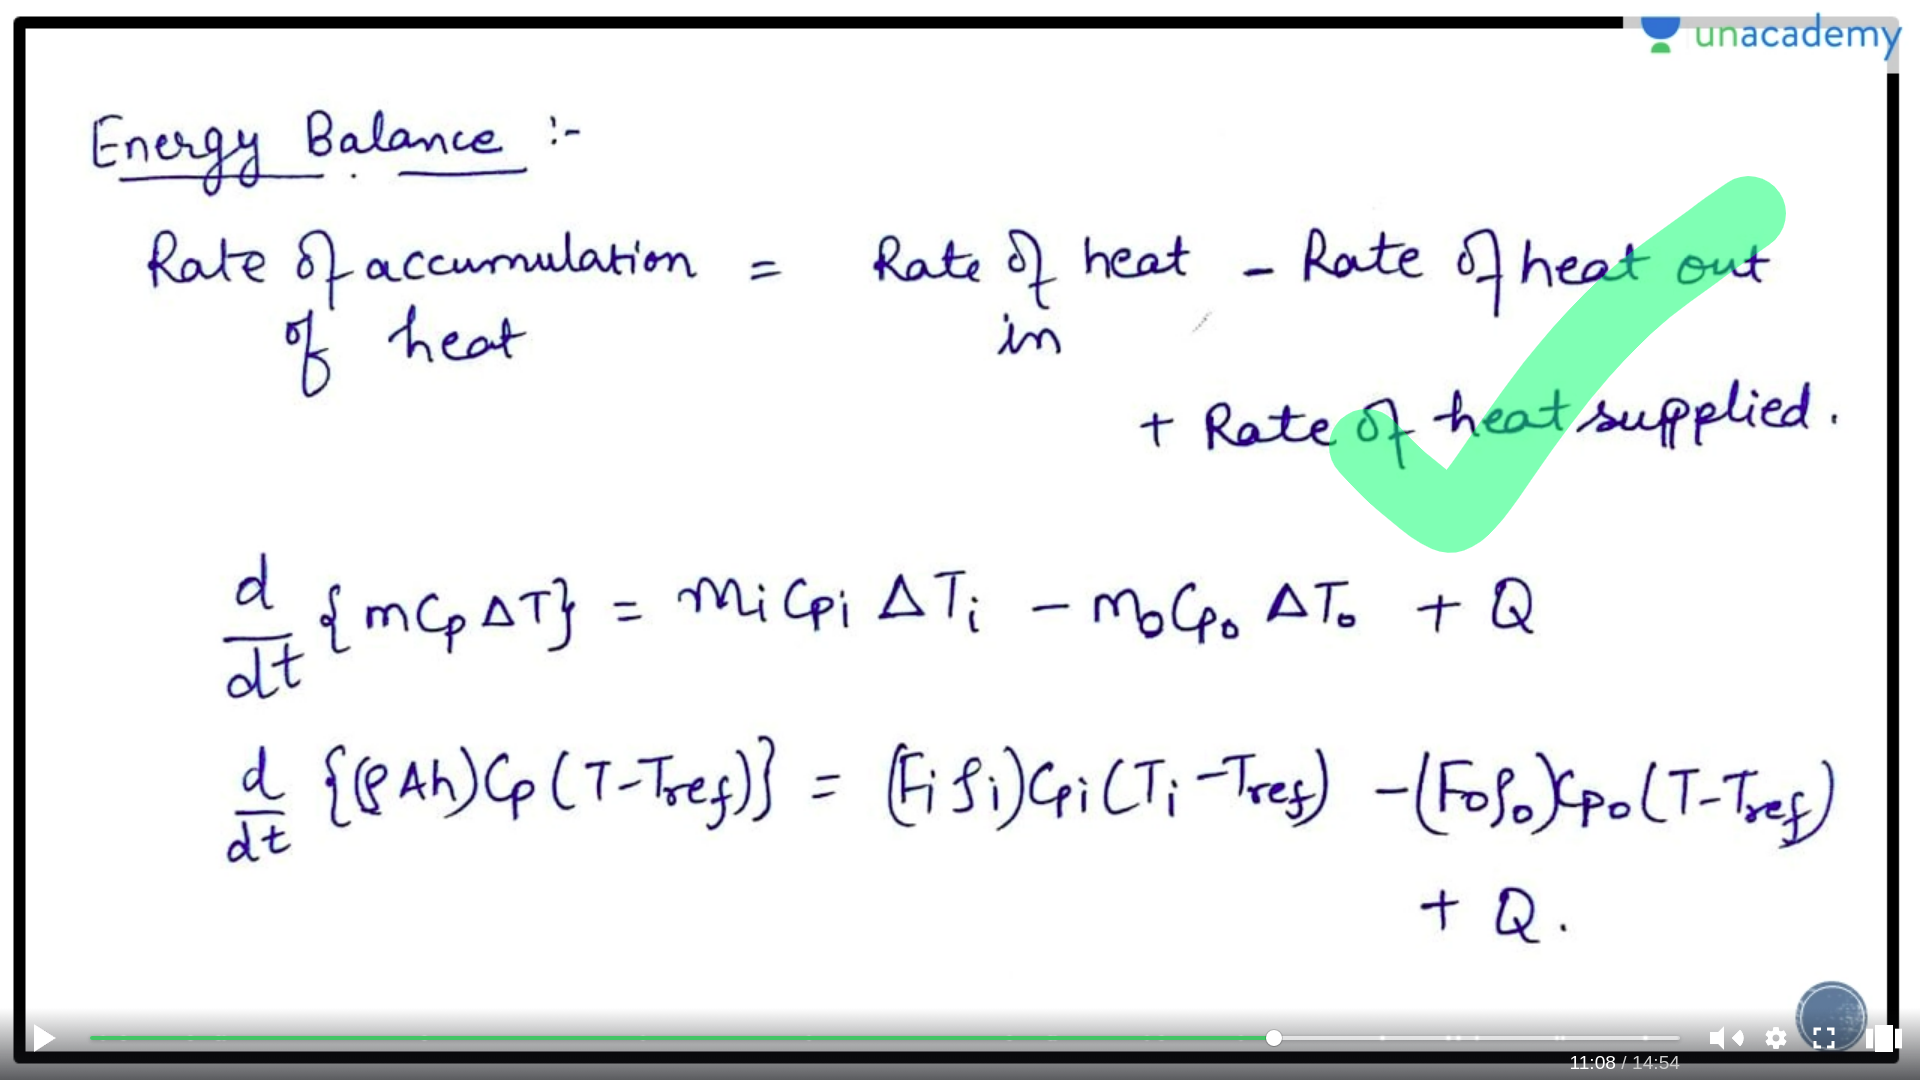 unacademy
Energy Balance :-
Rate of accumulation = Rate of heat - Rate of heat out
of heat in
+ Rate of heat supplied.
d/dt {mCpΔT} = miCpi ΔTi - moCpo ΔTo + Q
d/dt {(ρAh)Cp(T-Tref)} = (Fiρi)Cpi(Ti-Tref) - (Foρo)Cpo(T-Tref)
+ Q.
11:08 / 14:54